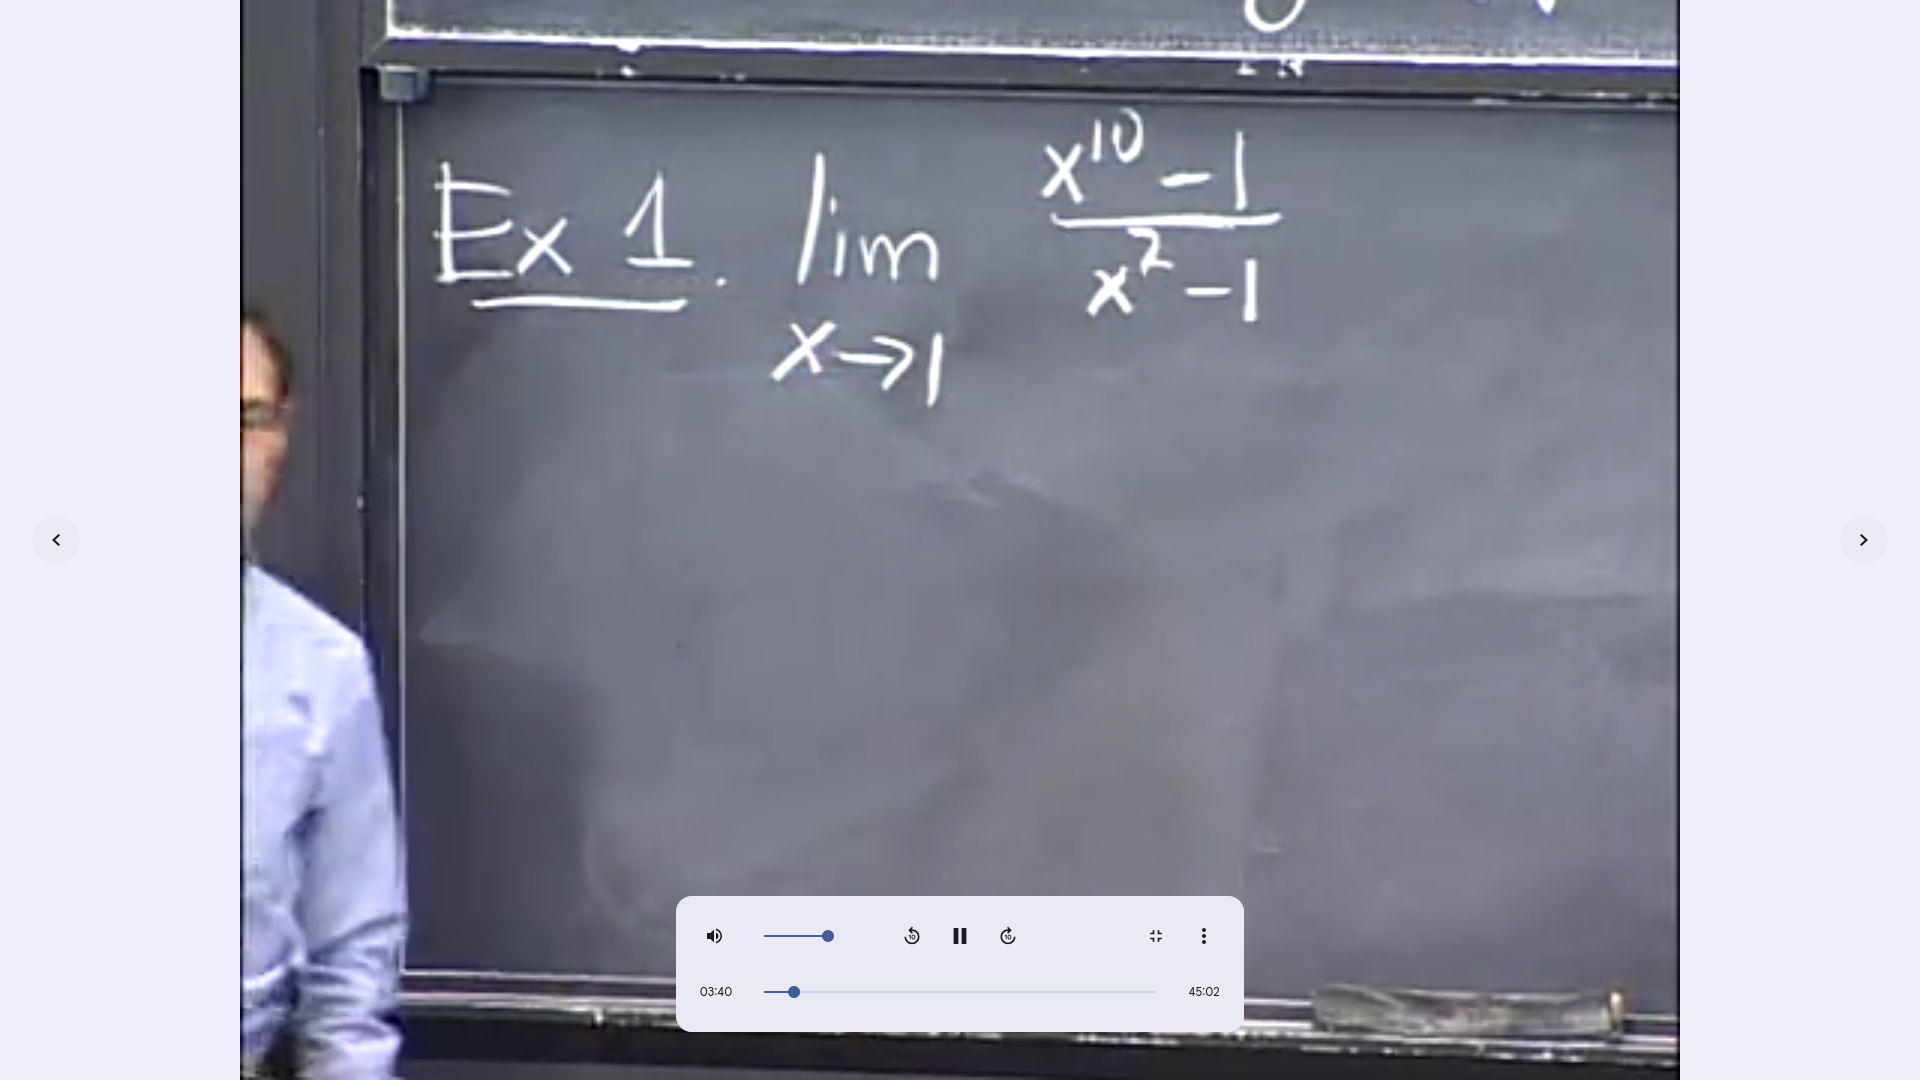 Ex 1. lim x→1 x^10 - 1 / x^2 - 1
10
10
03:40
45:02